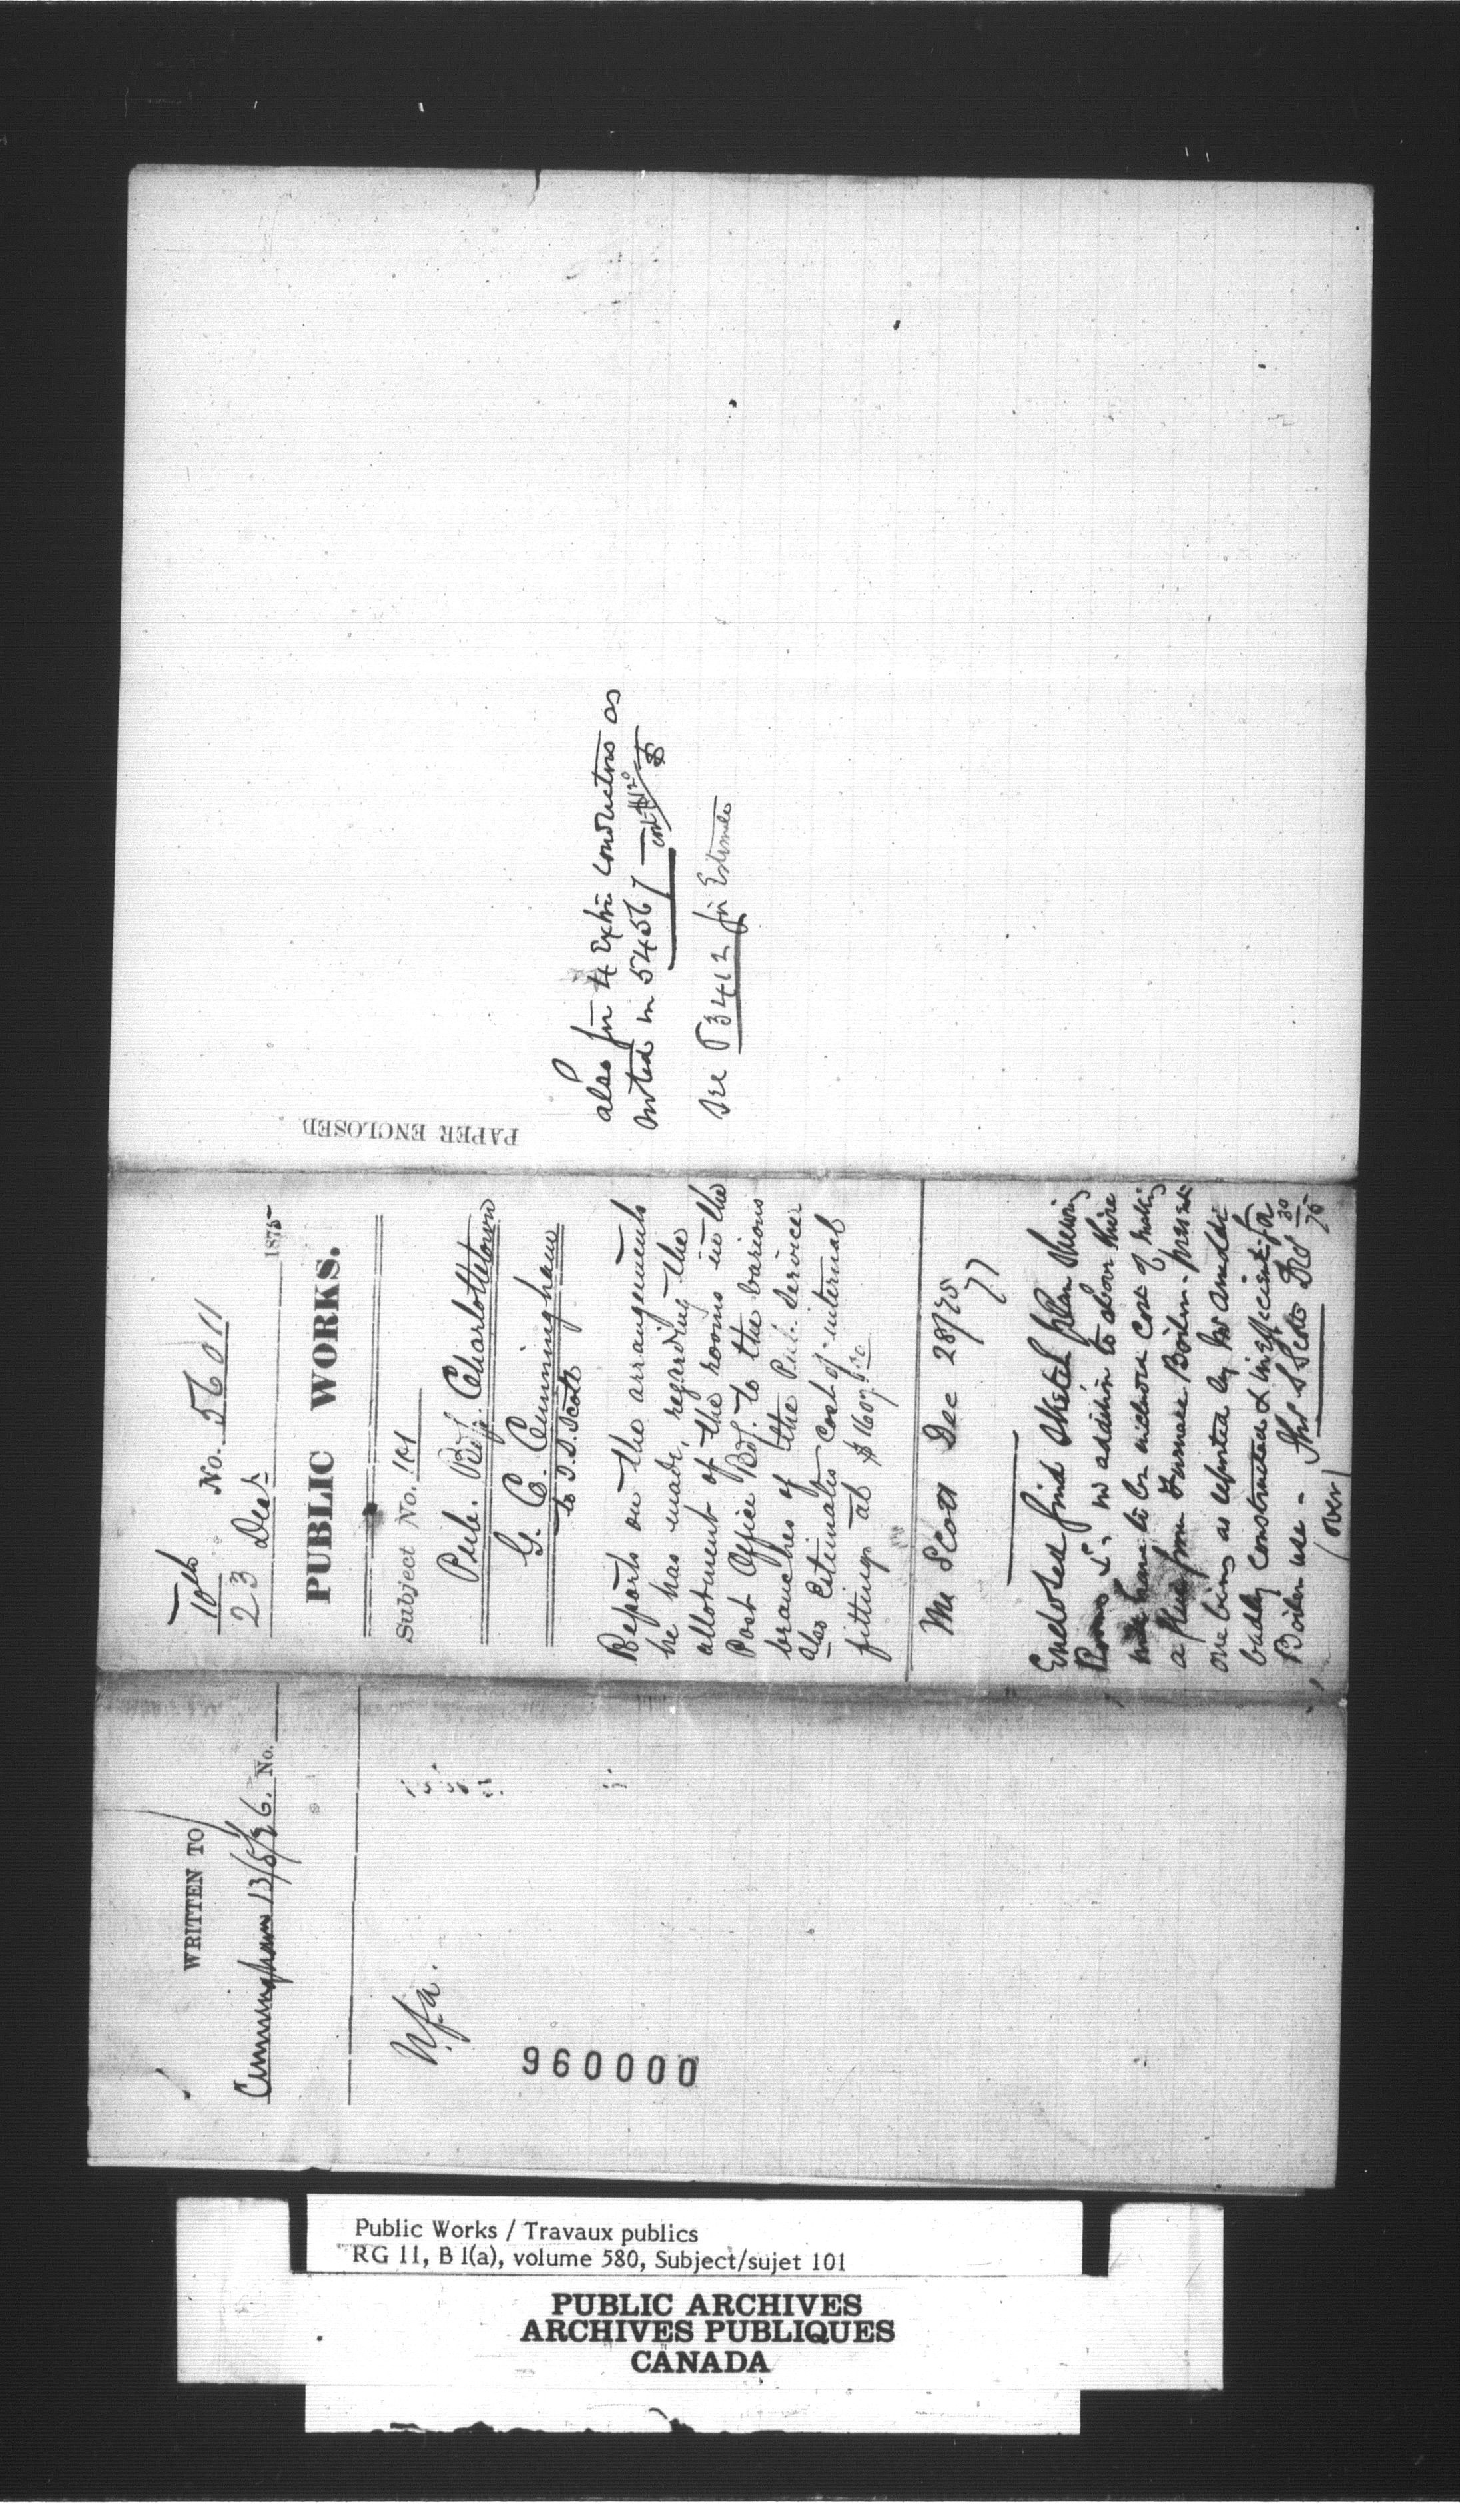 WRITTEN TO
Cunningham 13/5/76. No.
N.f.a.
960000
10th
No. 56011
23 Decr 1875
PUBLIC WORKS.
Subject No. 101
Pub. Bdgs. Charlottetown
G. C. Cunningham
to T. S. Scott
Reports on the arrangements
he has made, regarding the
allotment of the rooms in the
Post Office Bdg. to the various
branches of the Pub. Service
also Estimates cost of internal
fittings at $1607
Mr Scott Dec 28/75
Encloses find sketch plan shewing
Rooms &c, in addition to above there
will have to be cost of making
a flue from Furnace Boiler - present
one being as reported by Mr Arnoldi
badly constructed & inefficient for
Boiler use - Thos S Scott Dec 30/75
(over)
PAPER ENCLOSED.
also for 4 Extra Conductors as
noted in 54567
see 53412 for Estimates
Public Works / Travaux publics
RG 11, B 1(a), volume 580, Subject/sujet 101
PUBLIC ARCHIVES
ARCHIVES PUBLIQUES
CANADA